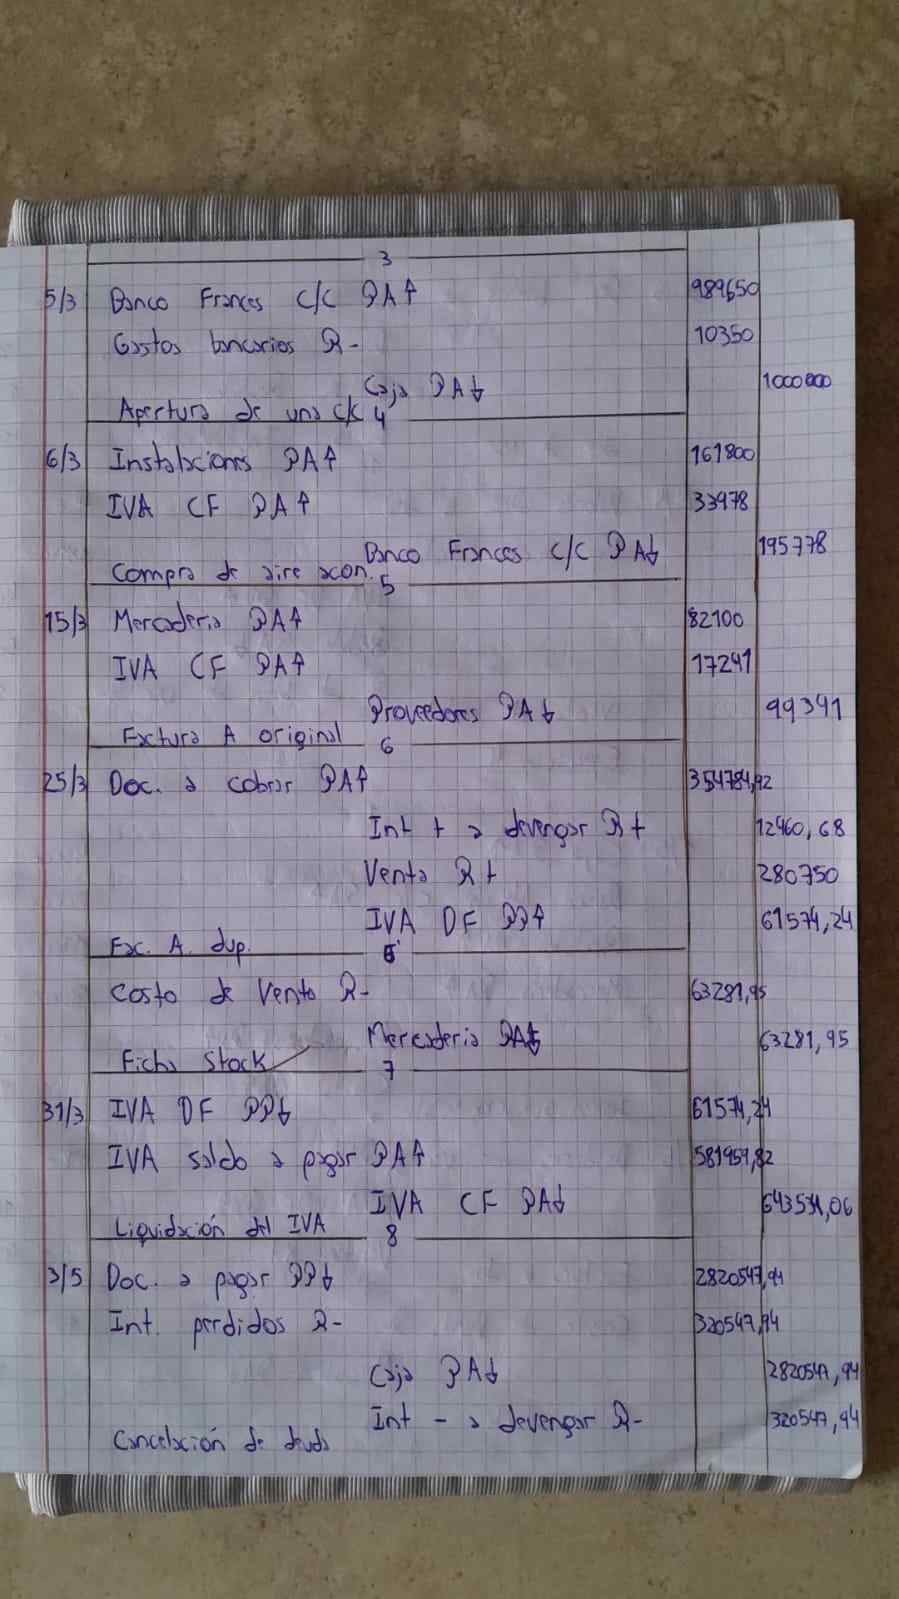 3
5/3 Banco Frances C/C PA↑ 989650
Gastos bancarios R- 10350
Caja PA↓ 1000000
Apertura de una c/c 4
6/3 Instalaciones PA↑ 161800
IVA CF PA↑ 33978
Banco Frances C/C PA↓ 195778
Compra de aire acon. 5
15/3 Mercaderia PA↑ 82100
IVA CF PA↑ 17241
Proveedores PA↓ 99341
Factura A original 6
25/3 Doc. a cobrar PA↑ 354784,92
Int + a devengar R+ 12460,68
Venta R+ 280750
IVA DF PP↑ 61574,24
Fac. A. dup. 6'
Costo de Venta R- 63281,95
Mercaderia PA↓ 63281,95
Ficha Stock 7
31/3 IVA DF PP↓ 61574,24
IVA saldo a pagar PA↑ 581959,82
IVA CF PA↓ 643534,06
Liquidación del IVA 8
3/5 Doc. a pagar PP↓ 2820547,94
Int. perdidos R- 320547,94
Caja PA↓ 2820547,94
Int - a devengar R- 320547,94
Cancelación de deuda